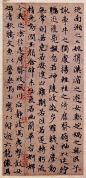 從南湘之二姚攜漢濱之游女歎匏瓜之無
匹詠牽牛之獨處揚輕袿之綺靡翳脩袖以
延佇體迅飛鳧飄忽若神陵波微步羅襪生
塵動無常則若危若安進止難期若往若還轉眄流
精光潤玉顏含辭未吐氣若幽蘭華容婀娜
令我忘餐於是屏翳收風川后靜波馮夷鳴鼓女
媧清歌騰文魚以警乘鳴玉鑾以偕逝六龍儼其